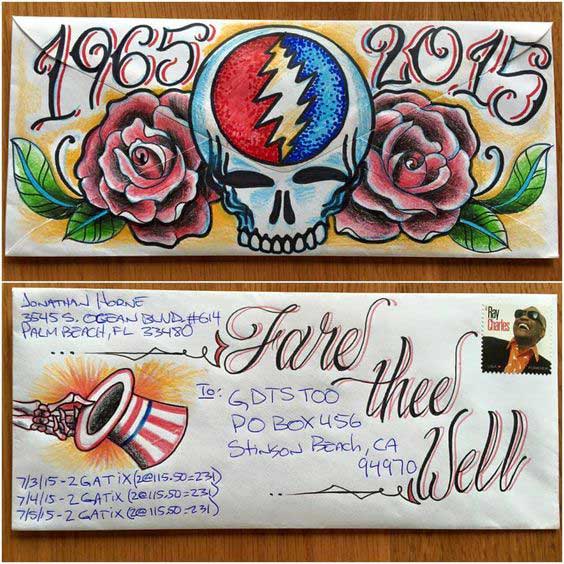 1965
2015
JONATHAN HORNE
3545 S. OCEAN BLVD. #614
PALM BEACH, FL 33480
Ray
Charles
Fare
thee
Well
To: GDTSTOO
PO BOX 456
STINSON BEACH, CA
94970
7/3/15-2 GA TIX (2@115.50=231)
7/4/15-2 GA TIX (2@115.50=231)
7/5/15-2 GA TIX (2@115.50=231)